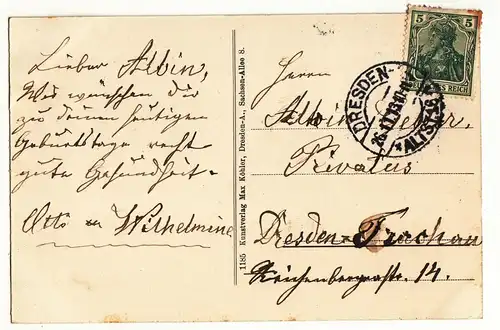 Lieber Albin,
Wir wünschen dir
zu deinem heutigen
Geburtstage recht
gute Gesundheit.
Otto u Wilhelmine
1185 Kunstverlag Max Köhler, Dresden-A., Sachsen-Allee 8.
Herrn
Albin
Privatus
Dresden-Trachau
Reichenbergerstr. 14.
5 5
REICH
DRESDEN-
ALTST.